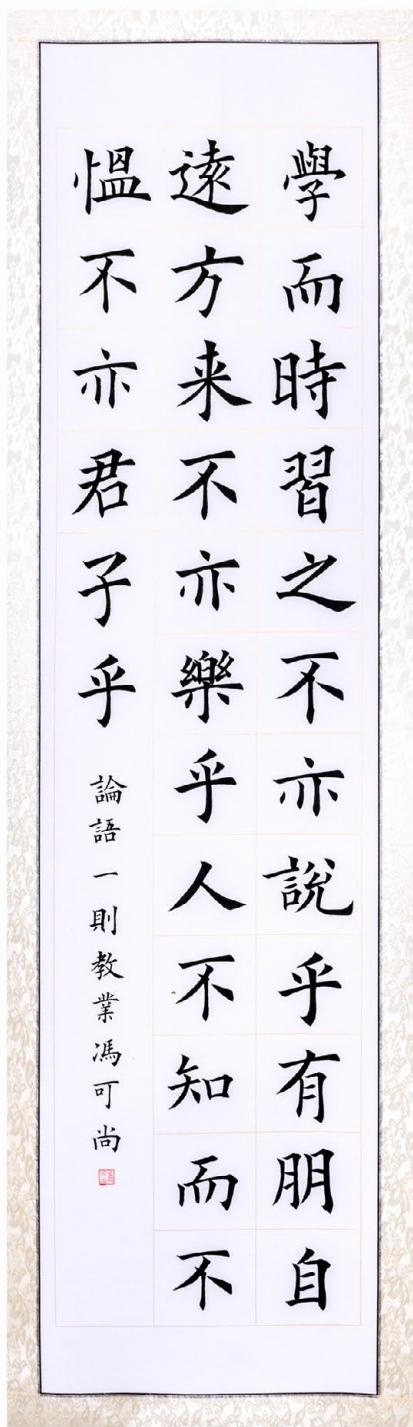 學而時習之不亦說乎有朋自
遠方来不亦樂乎人不知而不
慍不亦君子乎
論語一則教業馮可尚